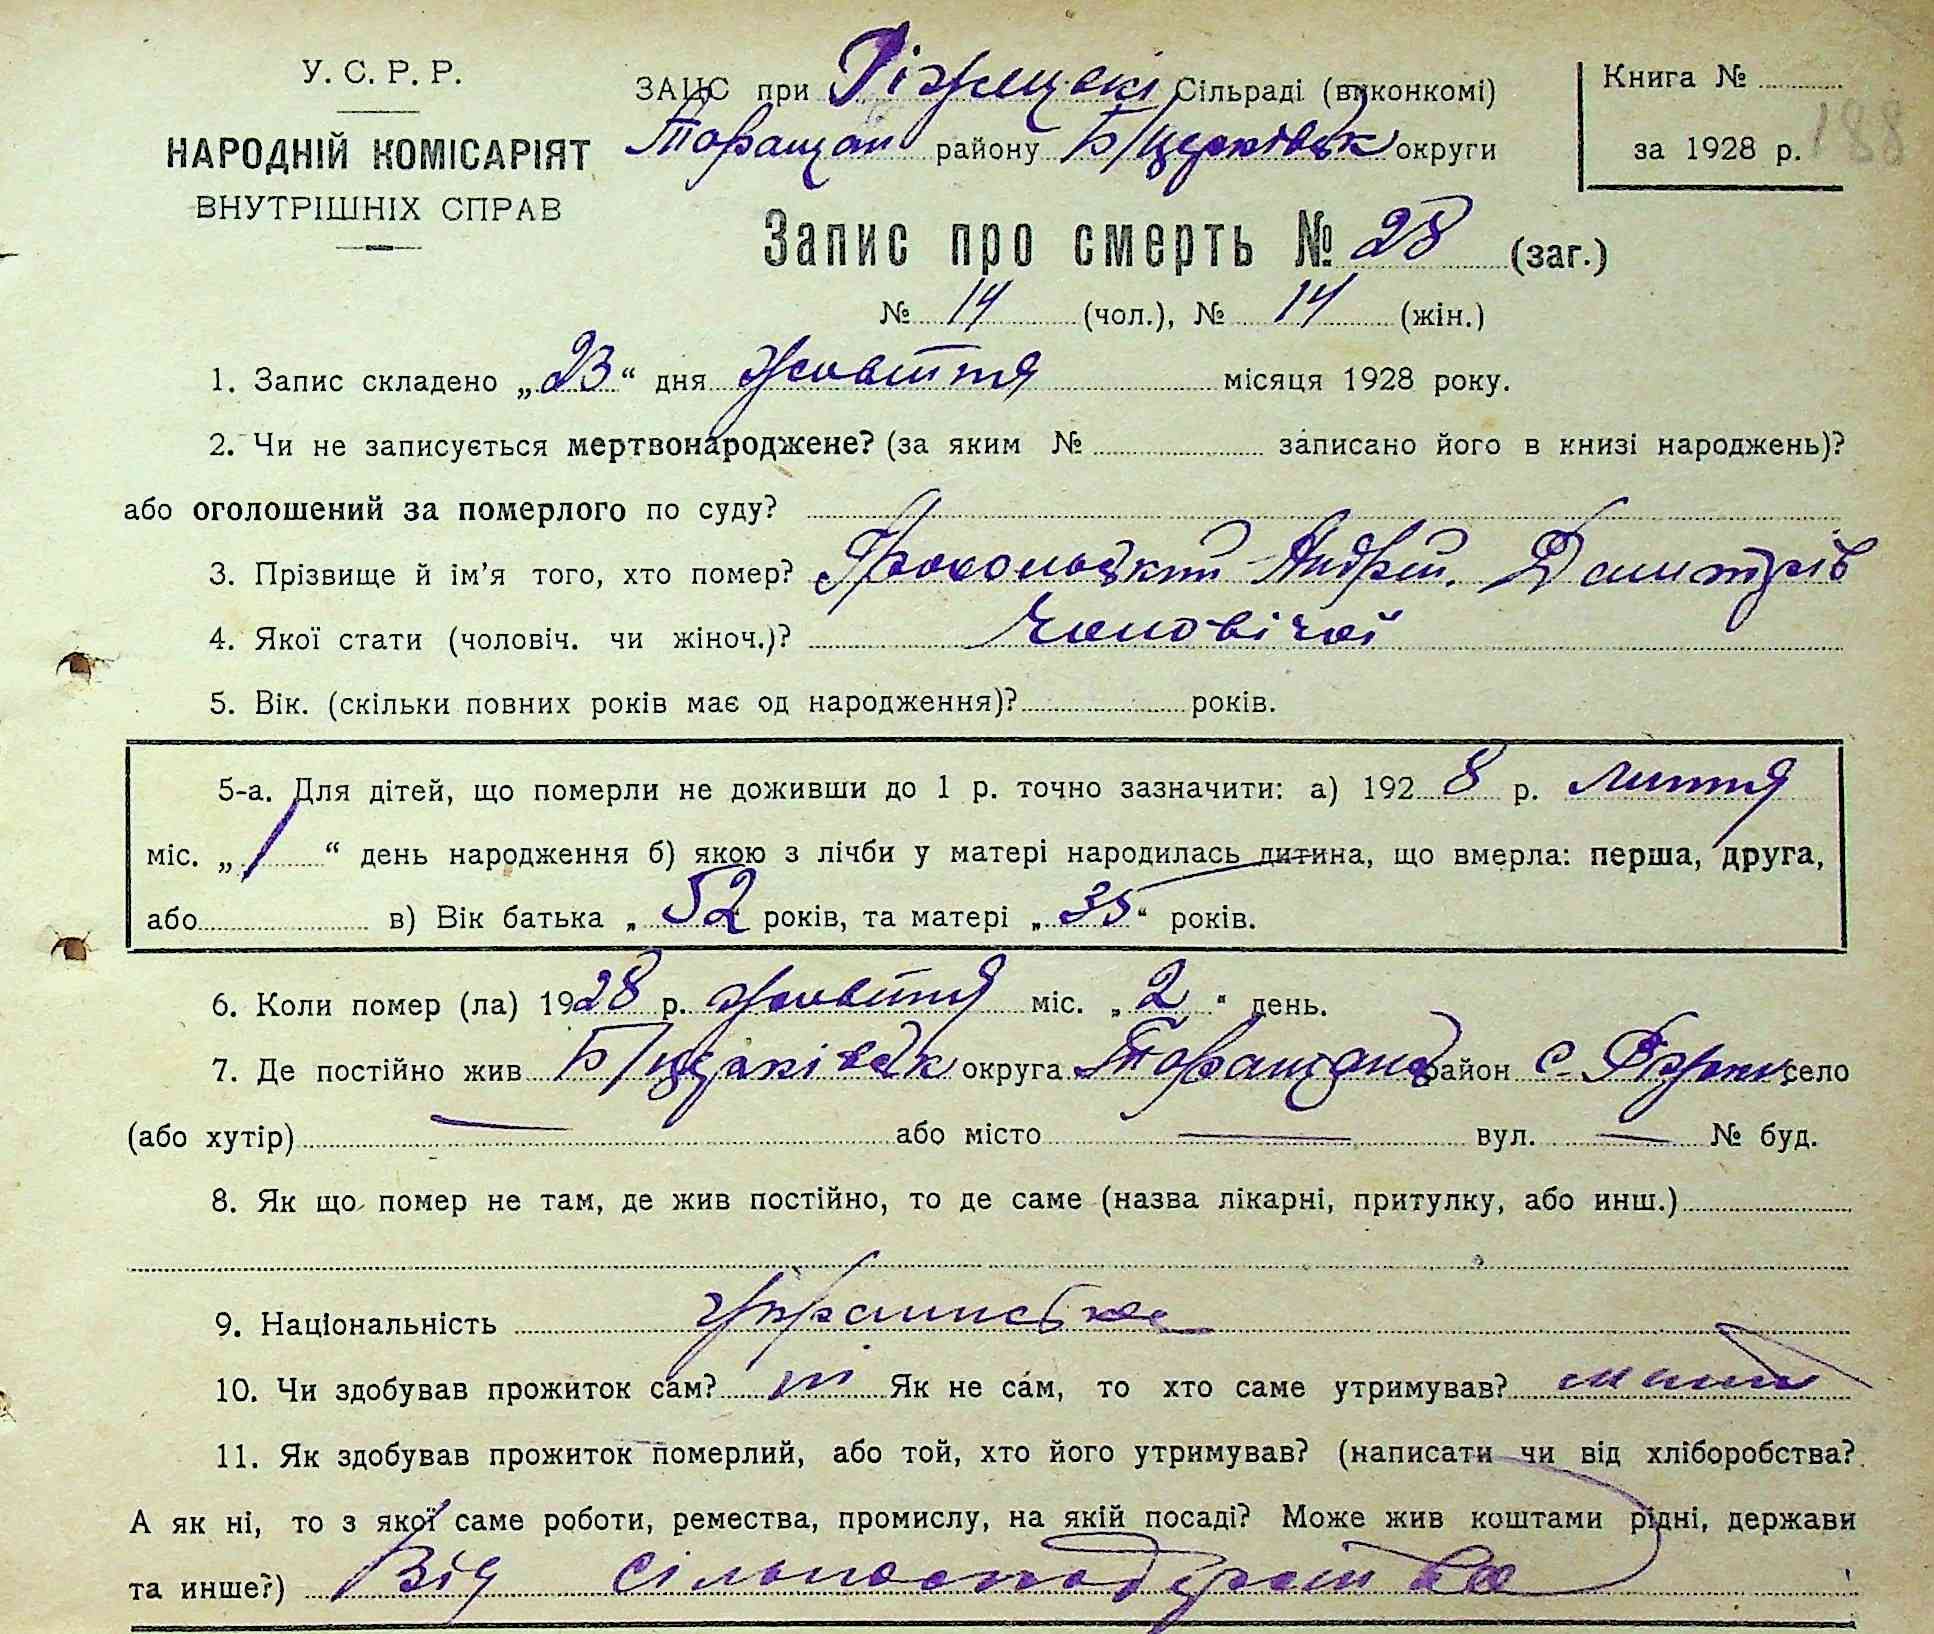 У. С. Р. Р.
НАРОДНІЙ КОМІСАРІЯТ
ВНУТРІШНІХ СПРАВ
ЗАЦС при Ріжецькі Сільраді (виконкомі)
Таращан району Б/церківськ округи
Книга №
за 1928 р. 188
Запис про смерть № 28 (заг.)
№ 14 (чол.), № 14 (жін.)
1. Запис складено „23“ дня жовтня місяця 1928 року.
2. Чи не записується мертвонароджене? (за яким № записано його в книзі народжень)?
або оголошений за померлого по суду?
3. Прізвище й ім’я того, хто помер? Андрій Дмитрів
4. Якої стати (чоловіч. чи жіноч.)? Чоловічої
5. Вік. (скільки повних років має од народження)? років.
5-а. Для дітей, що померли не доживши до 1 р. точно зазначити: а) 1928 р. липня
міс. „1“ день народження б) якою з лічби у матері народилась дитина, що вмерла: перша, друга,
або в) Вік батька „52 років, та матері „35“ років.
6. Коли помер (ла) 1928 р. жовтня міс. „2“ день.
7. Де постійно жив Б/церківськ округа Таращан район с. село
(або хутір) — або місто — вул. — № буд.
8. Як що помер не там, де жив постійно, то де саме (назва лікарні, притулку, або инш.)
9. Національність Українська
10. Чи здобував прожиток сам? ні Як не сам, то хто саме утримував?
11. Як здобував прожиток померлий, або той, хто його утримував? (написати чи від хліборобства?
А як ні, то з якої саме роботи, ремества, промислу, на якій посаді? Може жив коштами рідні, держави
та инше?) Від сільськогосподарства